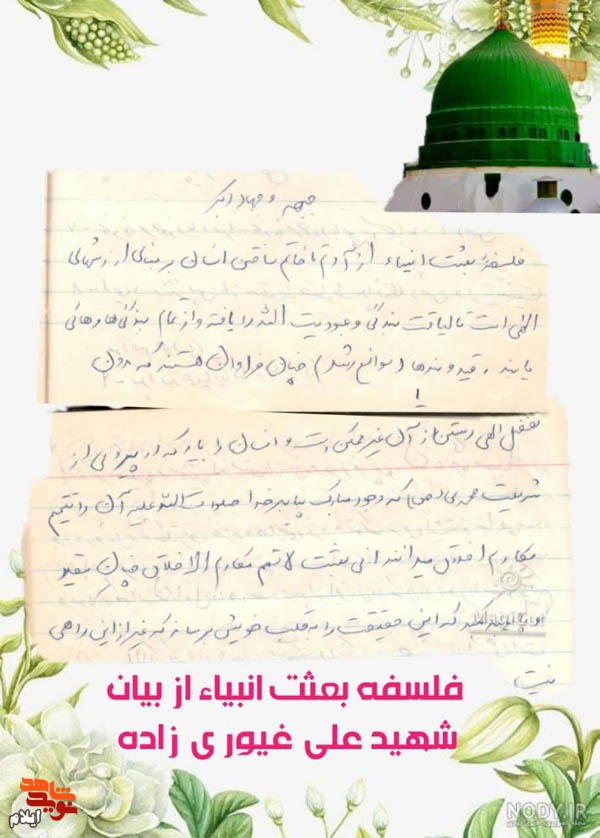 جبهه و جهاد اکبر
فلسفه بعثت انبیاء از آدم تا خاتم ساختن انسان بر مبنای ارزشهای
الهی است تا لیاقت بندگی و عبودیت الله را یافته و از تمام بندگی‌ها رهائی
یابند قید و بندها (موانع رشد) چنان فراوان هستند که بدون
تفضل الهی رستن از آن غیر ممکن است و انسان را باید که در پیروی از
شریعت محمدی (ص) که وجود مبارک پیامبر خدا صلوات الله علیه آن را تتمیم
مکارم اخلاق میدانند انی بعثت لاتمم مکارم الاخلاق چنان مقید
که این حقیقت را به قلب خویش برساند که غیر از این راهی
نیست.
فلسفه بعثت انبیاء از بیان
شهید علی غیور ی زاده
نوید شاهد
ایلام
NODY.IR